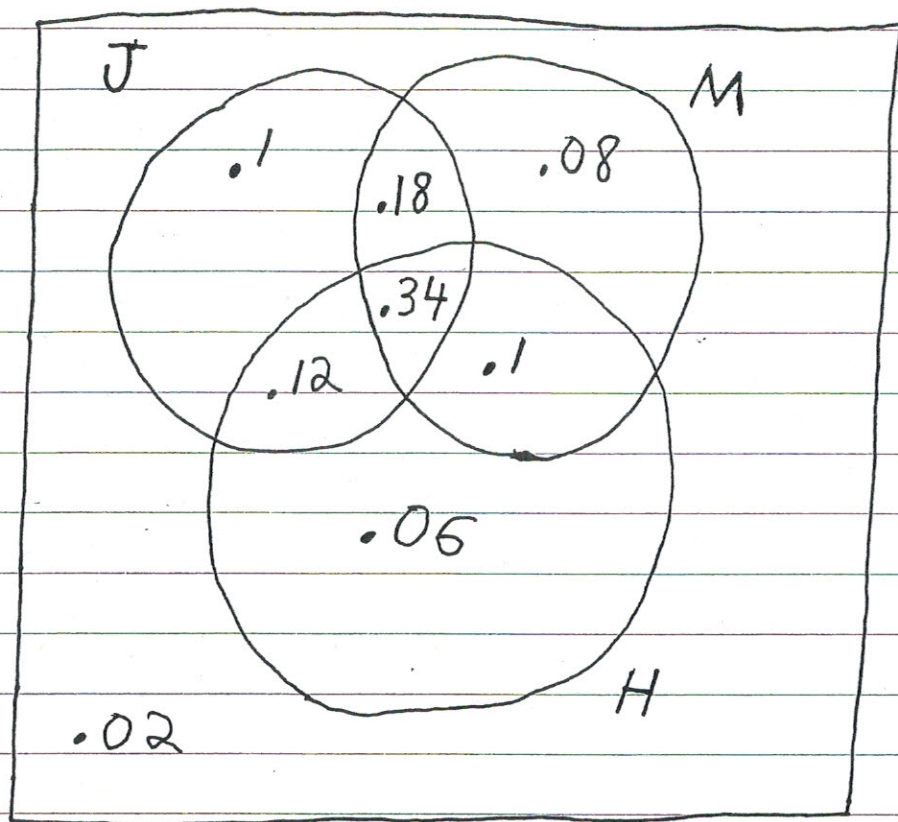 J
M
.1
.08
.18
.34
.12
.1
.06
H
.02